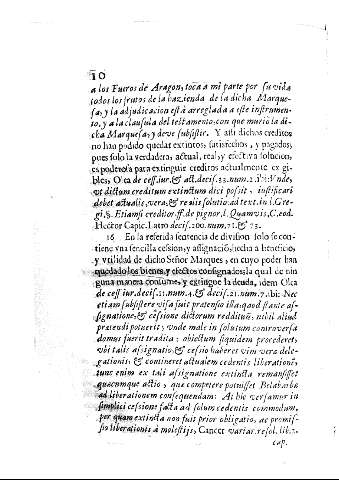 10
a los Fueros de Aragon, toca a mi parte por su vida
todos los frutos de la hazienda de la dicha Marque-
sa, y la adjudicacion està arreglada a este instrumen-
to, y a la clausula del testamento, con que murio la di-
cha Marquesa, y deve subsistir. Y assi dichos creditos
no han podido quedar extintos, satisfechos, y pagados,
pues solo la verdadera, actual, real, y efectiva solucion,
es poderosa para extinguir creditos actualmente exi-
gibles, Olea de cess. iur. & act. decis. 33. num. 2. ibi: Vnde,
vt dictum creditum extinctum dici possit, iustificari
debet actualis, vera, & realis solutio ad text. in l. Gre-
gi, §. Etiamsi creditor. ff. de pignor. l. Quamvis, C. eod.
Hector Capic. Latro decis. 200. num. 71. & 73.
16 En la referida sentencia de division solo se con-
tiene vna sencilla cesion, y assignacion hecha a beneficio,
y vtilidad de dicho Señor Marques, en cuyo poder han
quedado los bienes, y efectos consignados la qual de nin-
guna manera consume, y extingue la deuda, idem Olea
de cess. iur. decis. 21. num. 4. & decis. 21. num. 7. ibi: Nec
etiam subsistere visa fuit pretensio illa, quod stante as-
signatione, & cessione dictorum reddituũ, nihil aliud
pretendi potuerit; vnde male in solutum controversa
domus fuerit tradita; obiectum siquidem procederet,
vbi talis assignatio, & cessio haberet vim vera dele-
gationis, & contineret actualem cedentis liberationẽ,
tunc enim ex tali assignatione extincta remansisset
quacumque actio, que competere potuisset
ad liberationem consequendam: At hic versamur in
simplici cessione facta ad solum cedentis commodum,
per quam extincta non fuit prior obligatio, ac promis-
sio liberationis à molestijs, Cancer variar. resol. lib. 2.
cap.